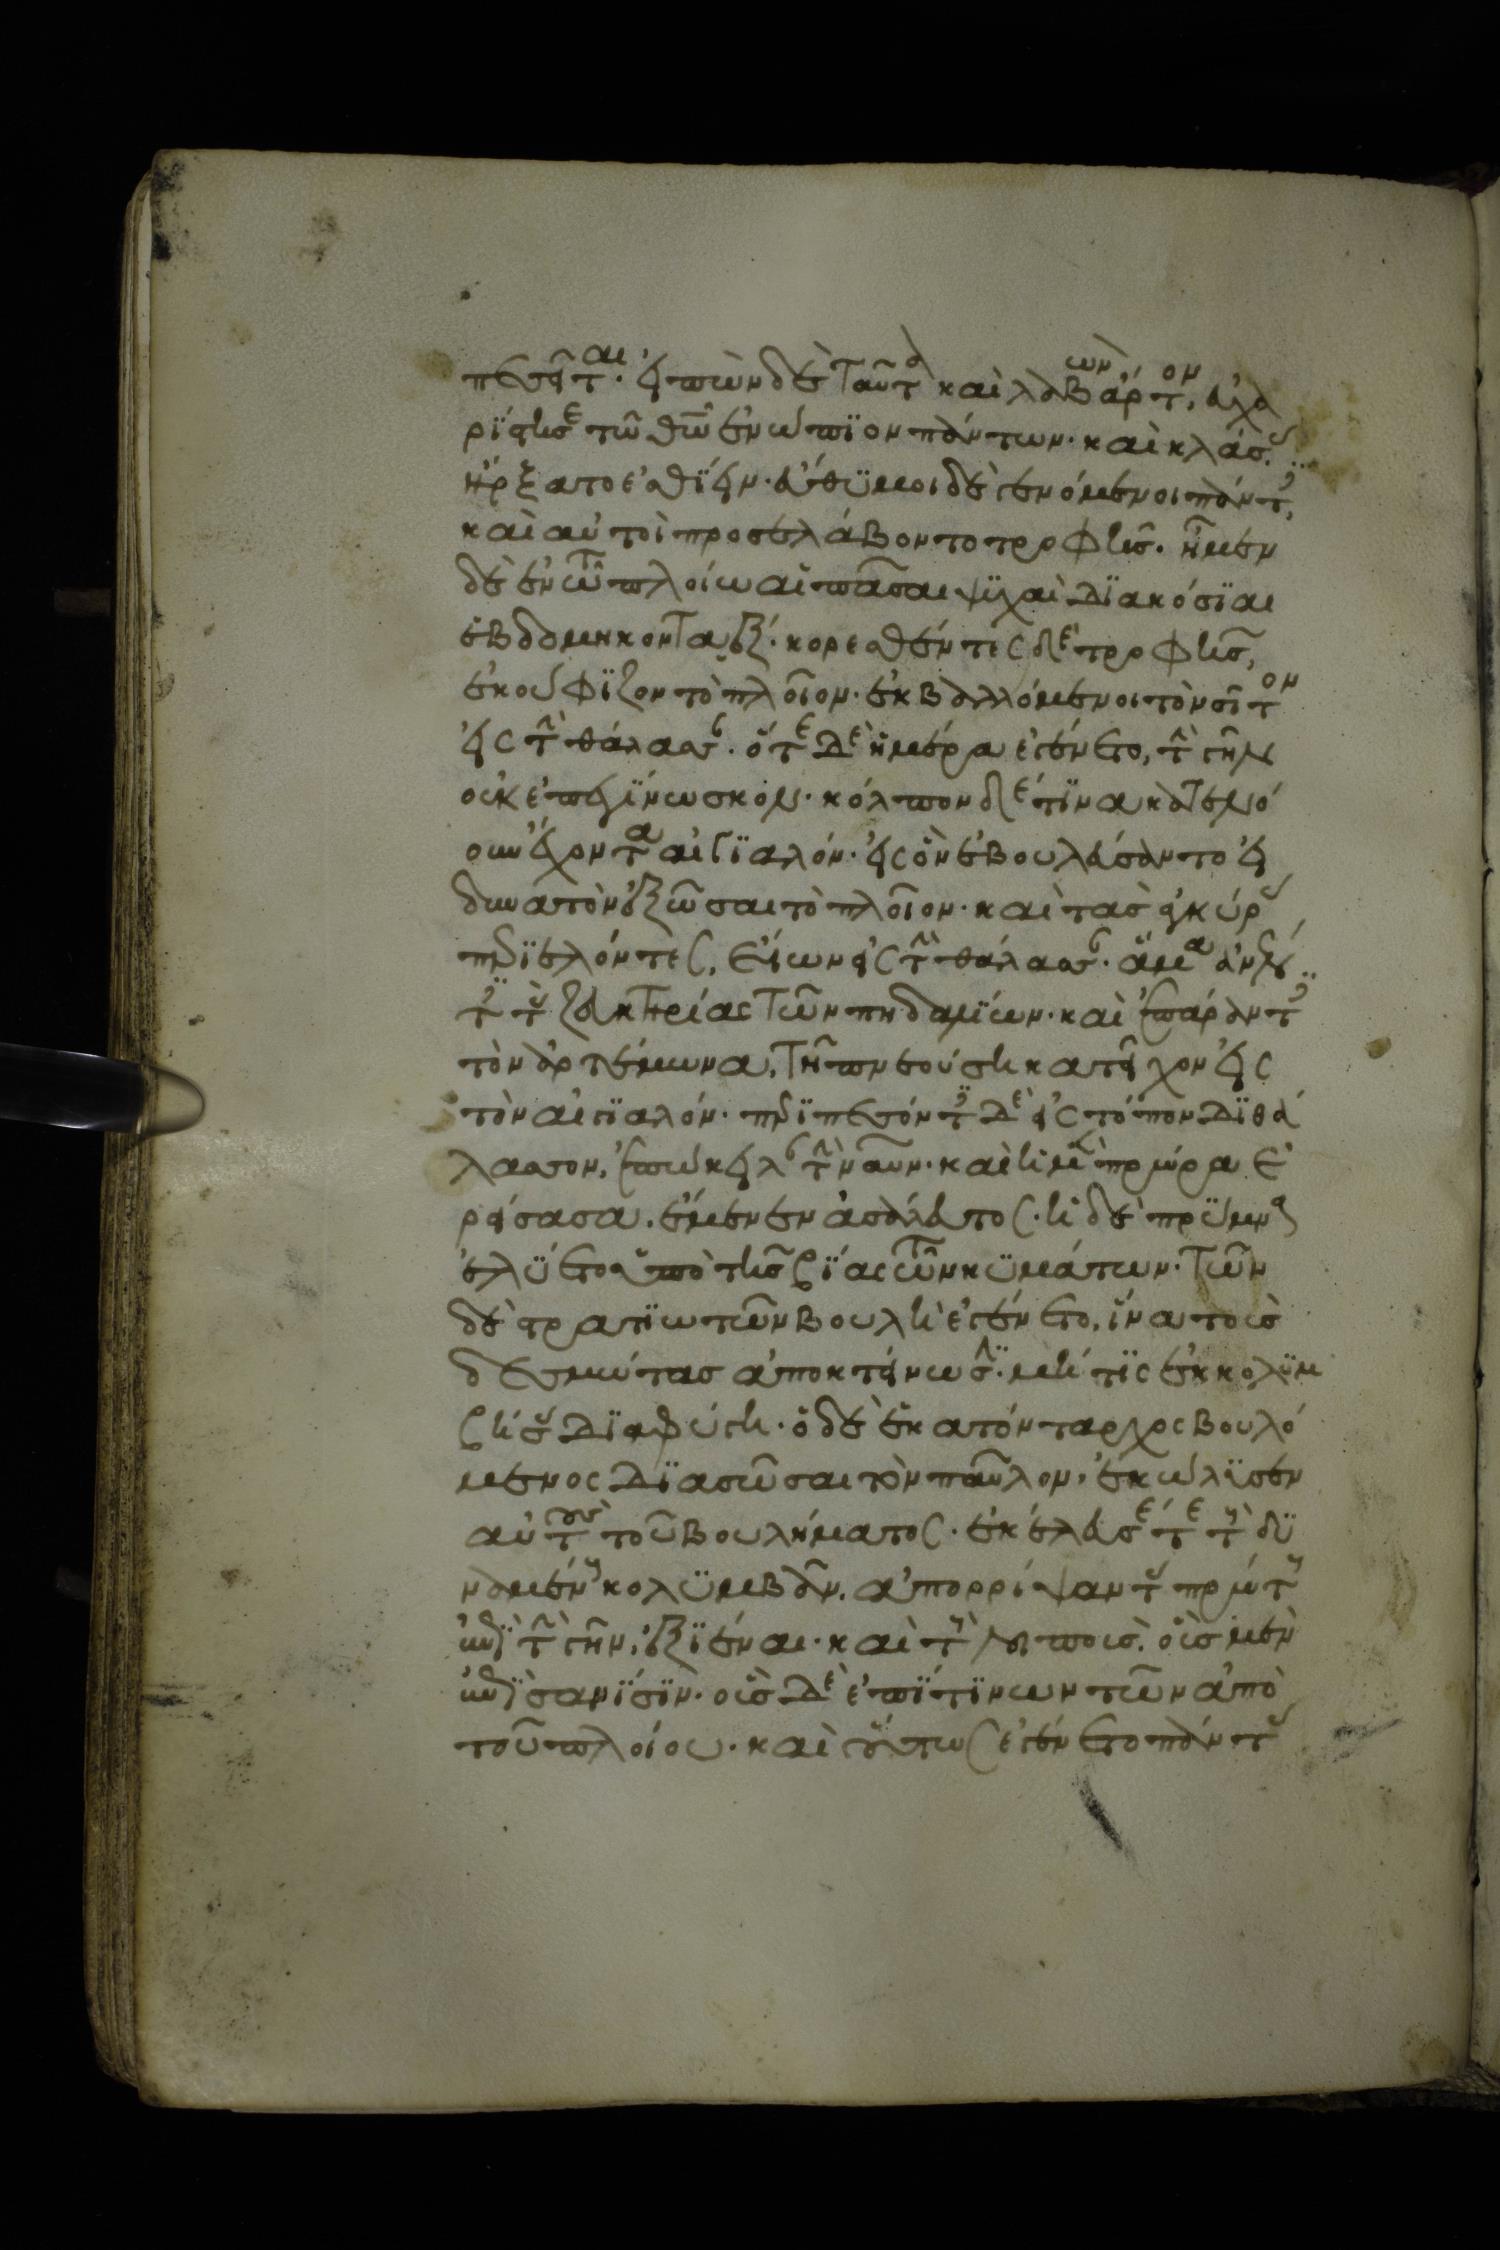 πεσεῖται· εἰπὼν δὲ ταῦτα καὶ λαβὼν ἄρτον, εὐχα
ρίστησε τῶ θῶ ἐνώπϊον πάντων· καὶ κλάσας
ἤρξατο ἐσθΐειν· εὔθϋμοι δὲ γενόμενοι πάντες,
καὶ αὐτοὶ προσελάβοντο τροφῆς· ἦμεν
δὲ ἐν τῶ πλοίω αἱ πᾶσαι ψϋχαὶ δϊακόσϊαι
ἑβδομηκονταέξ· κορεσθέντες δὲ τροφῆς,
ἐκούφϊζον τὸ πλοῖον· ἐκβαλλόμενοι τὸν σῖτον
εἰς τὴν θάλασσαν· ὅτε δὲ ἡμέρα ἐγένετο, τὴν γῆν
οὐκ ἐπεγΐνωσκον· κόλπον δέ τϊνα κατενό
ουν ἔχοντα αἰγϊαλόν· εἰς ὃν ἐβουλεύσαντο εἰ
δυνατὸν ἐξῶσαι τὸ πλοῖον· καὶ τὰς ἀγκύρας
περϊελόντες, εἴων εἰς τὴν θάλασσαν· ἅμα ἀνέν
τες τὰς ζευκτηρίας τῶν πηδαλΐων· καὶ ἐπάραντες
τὸν ἀρτέμωνα, τῆ πνεούση κατεῖχον εἰς
τὸν αἰγϊαλόν· περϊπεσόντες δὲ εἰς τόπον δϊθά
λασσον, ἐπώκειλαν τὴν ναῦν· καὶ ἡ μὲν πρώρα ἐ
ρείσασα, ἔμενεν ἀσάλευτος· ἡ δὲ πρΰμνα
ἐλΰετο ὑπὸ τῆς βΐας τῶν κϋμάτων· τῶν
δὲ στρατϊωτῶν βουλὴ ἐγένετο, ἵνα τοὺς
δεσμώτας ἀποκτείνωσϊν· μή τϊς ἐκκολϋμ
βήσας δϊαφύγη· ὁ δὲ ἑκατόνταρχος βουλό
μενος δϊασῶσαι τὸν παῦλον, ἐκώλϋσεν
αὐτοὺς τοῦ βουλήματος· ἐκέλευσέ τε τοὺς δϋ
ναμένους κολϋμβᾶν, ἀπορρίψαντας πρώτους
ἐπὶ τὴν γῆν ἐξϊέναι· καὶ τοὺς λοιποὺς, οὓς μὲν
ἐπϊ σανΐσϊν· οὓς δὲ ἐπΐ τϊνων τῶν ἀπὸ
τοῦ πλοίου· καὶ οὕτως ἐγένετο πάντας